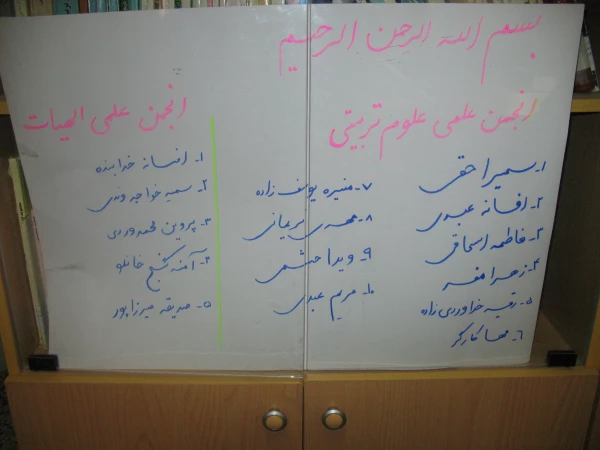 بسم الله الرحمن الرحیم
انجمن علمی علوم تربیتی
۱- سمیرا حقی
۲- افسانه عبدی
۳- فاطمه اسحاقی
۴- زهرا مفسر
۵- رقیه خداوردی زاده
۶- مهسا کارگر
۷- منیره یوسف زاده
۸- مهدی نریمانی
۹- ویدا حشمتی
۱۰- مریم عبدی
انجمن علمی الهیات
۱- افسانه خدابنده
۲- سمیه خواجه وندی
۳- پروین محمدوردی
۴- آمنه گنج خانلو
۵- صدیقه میرزاپور